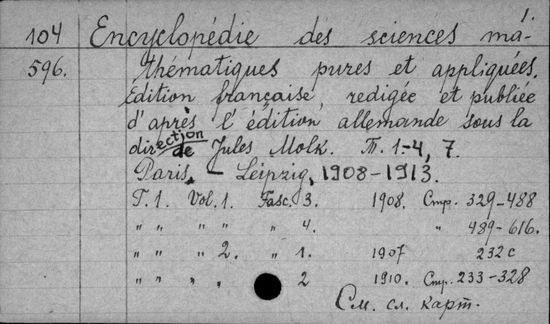 1.
104 Encyclopédie des sciences ma-
596. thématiques pures et appliquées.
Édition française, redigée et publiée
d'après l'édition allemande sous la
direction de Jules Molk. Т. 1-4, 7.
Paris - Leipzig, 1908-1913.
Т. 1. Vol. 1. Fasc. 3. 1908. Стр. 329-488
" " " " " 4. " 489-616.
" " " 2. " 1. 1907 232 с
" " " " " 2 1910. Стр. 233-328
См. сл. карт.